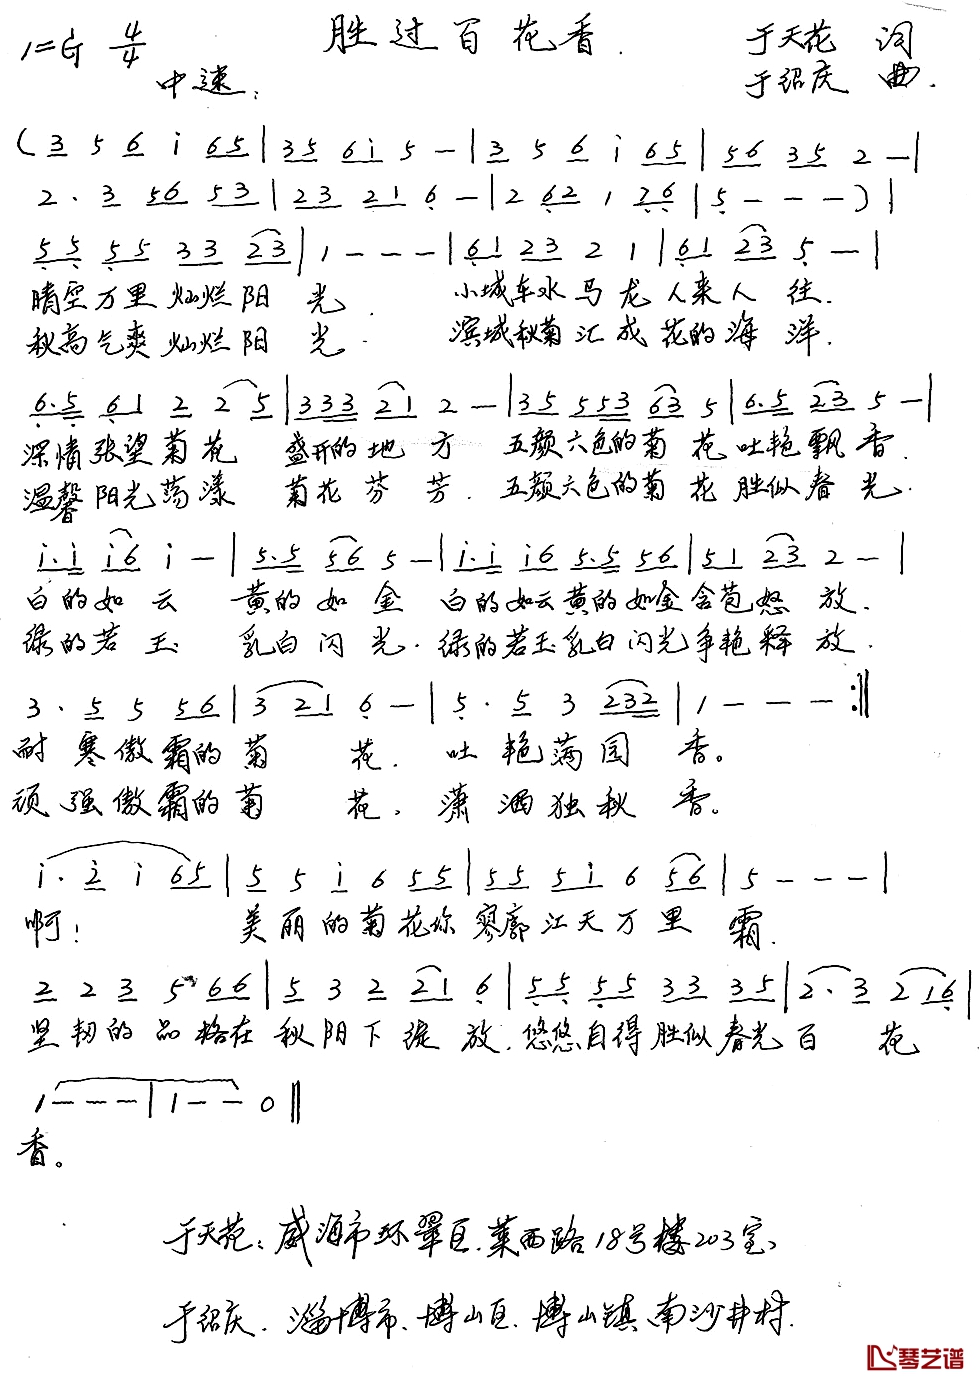 1=G 4/4 胜过百花香. 于天花 词
中速; 于绍庆 曲.
(3 5 6 i 65|35 6i 5 -|3 5 6 i 65|56 35 2 -|
2·3 56 53|23 21 6 -|2 62 1 76|5 - - -)|
55 55 33 23|1 - - -|61 23 2 1|61 23 5 -|
晴空万里灿烂阳光. 小城车水马龙人来人往.
秋高气爽灿烂阳光. 滨城秋菊汇成花的海洋.
6·5 61 2 2 5|333 21 2 -|35 553 63 5|6·5 23 5 -|
深情张望菊花 盛开的地方 五颜六色的菊花吐艳飘香.
温馨阳光荡漾 菊花芬芳. 五颜六色的菊花胜似春光.
i·i i6 i -|5·5 56 5 -|i·i i6 5·5 56|51 23 2 -|
白的如云 黄的如金 白的如云黄的如金含苞怒放.
绿的若玉 乳白闪光. 绿的若玉乳白闪光争艳释放.
3·5 5 56|3 21 6 -|5·5 3 232|1 - - -:‖
耐寒傲霜的菊花. 吐艳满园香。
顽强傲霜的菊花, 潇洒独秋香。
i·2 i 65|5 5 i 6 55|55 5i 6 56|5 - - -|
啊! 美丽的菊花你寥廓江天万里霜.
2 2 3 5 66|5 3 2 21 6|55 55 33 35|2·3 2 16|
坚韧的品格在秋阳下绽放. 悠悠自得胜似春光百花
1 - - -|1 - - 0‖
香。
于天花: 威海市环翠区.莱西路18号楼203室、
于绍庆. 淄博市、博山区.博山镇.南沙井村.
琴艺谱